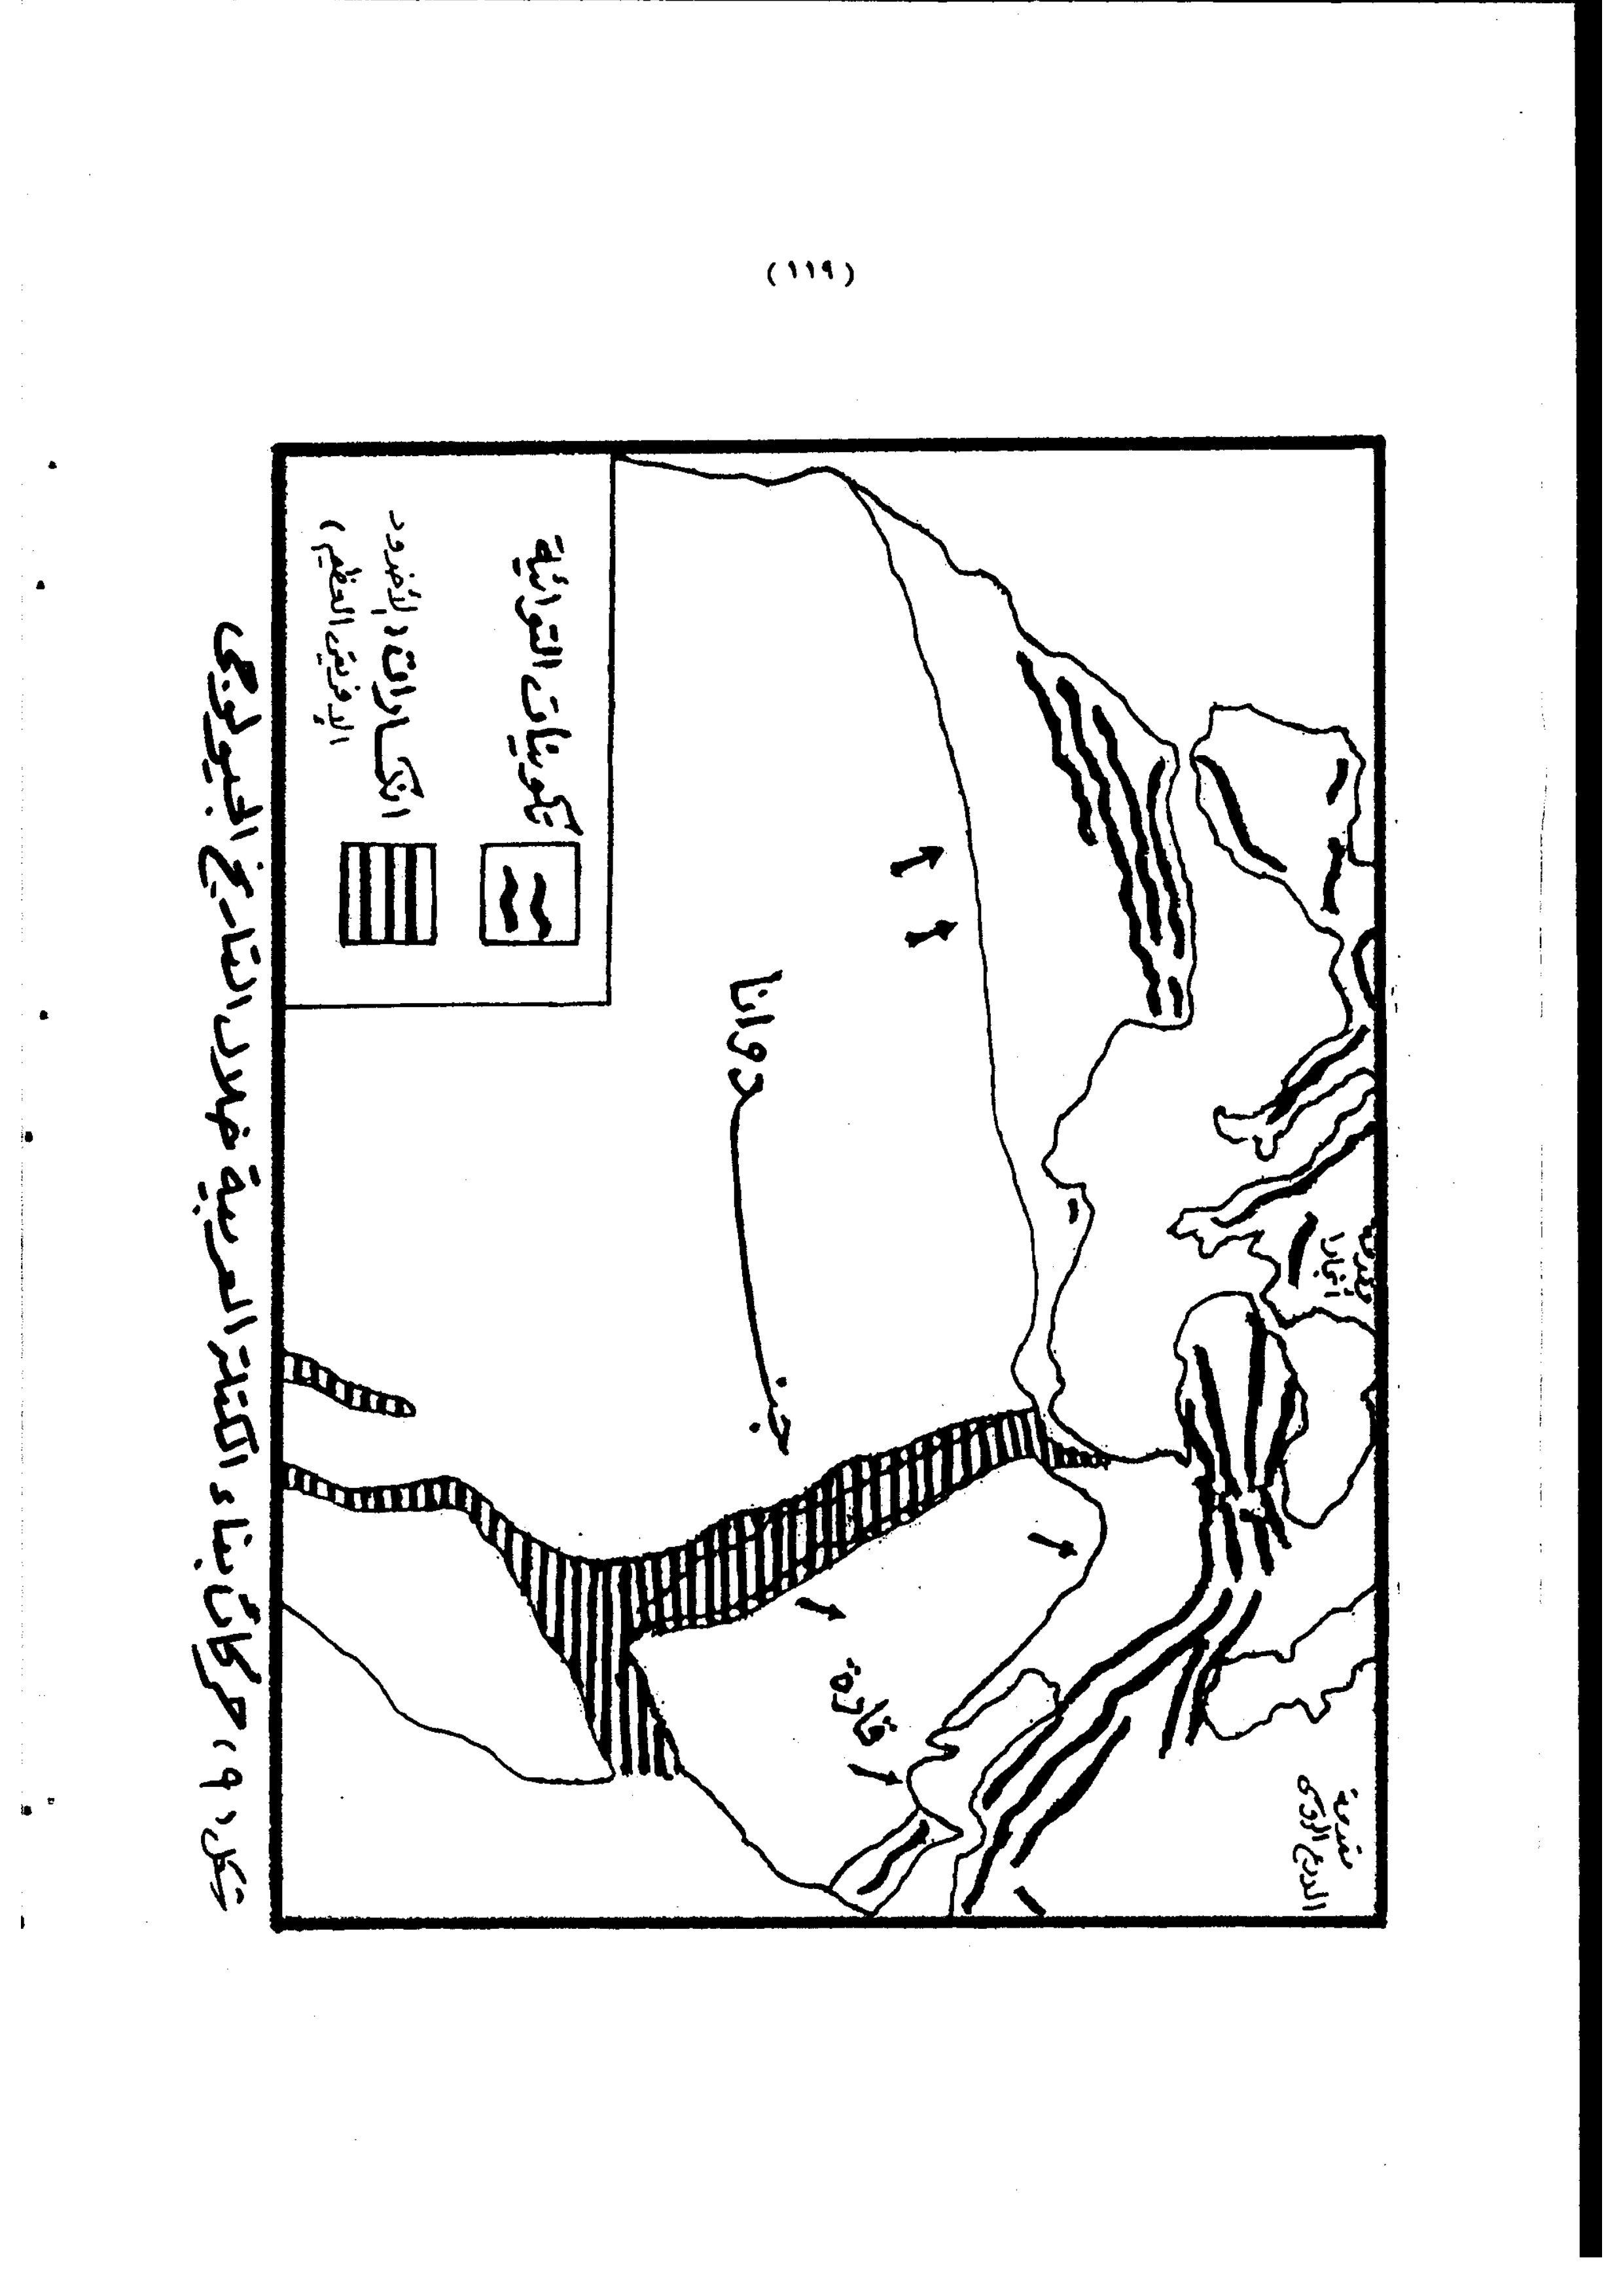 (١١٩)
مقدمة
الدرع الروسى
مقدمة
أنجارا
قارة
جنـدوانا
تكوينات التوائية
انكسارات (الأخدود
الإفريقى العظيم)
شكل (٩) حركات بناء الكتلة العربية خلال التاريخ الجيولوجى